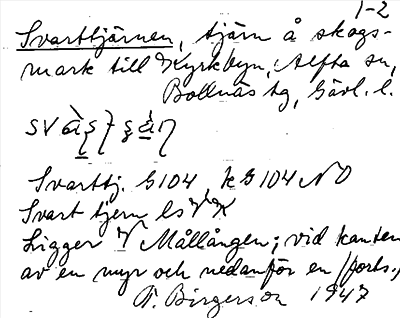 1-2
Svarttjärnen, tjärn å skogs-
mark till Kyrkbyn, Alfta sn,
Bollnäs tg, Gävl. l.
Svarttj. G104, k G104 NO
Svart tjern ls V K
Ligger V Mållången; vid kanten
av en myr och nedanför en (forts.,
F. Birgerson 1947